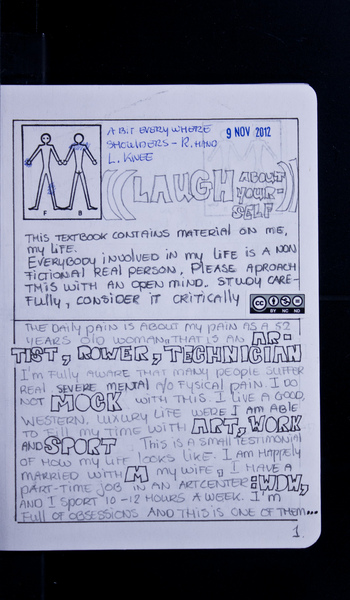 A BIT EVERYWHERE
SHOULDERS - R. HAND
L. KNEE
9 NOV 2012
F B
LAUGH ABOUT
YOUR-
SELF
THIS TEXTBOOK CONTAINS MATERIAL ON ME,
MY LIFE.
EVERYBODY INVOLVED IN MY LIFE IS A NON
FICTIONAL REAL PERSON, PLEASE APROACH
THIS WITH AN OPEN MIND. STUDY CARE-
FULLY, CONSIDER IT CRITICALLY
CC BY NC ND
THE DAILY PAIN IS ABOUT MY PAIN AS A 52
YEARS OLD WOMAN, THAT IS AN AR-
TIST, ROWER, TECHNICIAN
I'M FULLY AWARE THAT MANY PEOPLE SUFFER
REAL SEVERE MENTAL A/O FYSICAL PAIN. I DO
NOT MOCK WITH THIS. I LIVE A GOOD,
WESTERN, LUXURY LIFE WERE I AM ABLE
TO FILL MY TIME WITH ART, WORK
AND SPORT THIS IS A SMALL TESTIMONIAL
OF HOW MY LIFE LOOKS LIKE. I AM HAPPELY
MARRIED WITH M MY WIFE, I HAVE A
PART-TIME JOB IN AN ARTCENTER: WDW,
AND I SPORT 10-12 HOURS A WEEK. I'M
FULL OF OBSESSIONS AND THIS IS ONE OF THEM...
1.